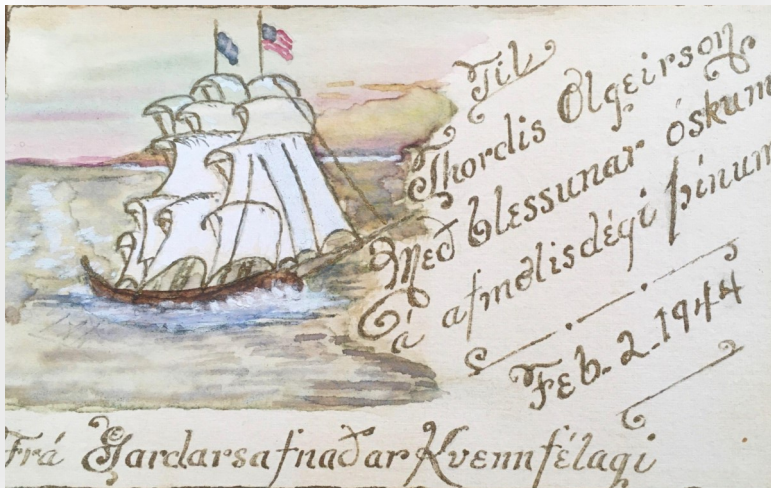 Til
Thordis Olgeirson
Með blessunar óskum
á afmælisdégi þínum
Feb. 2. 1944
Frá Gardarsafnaðar Kvennfélagi